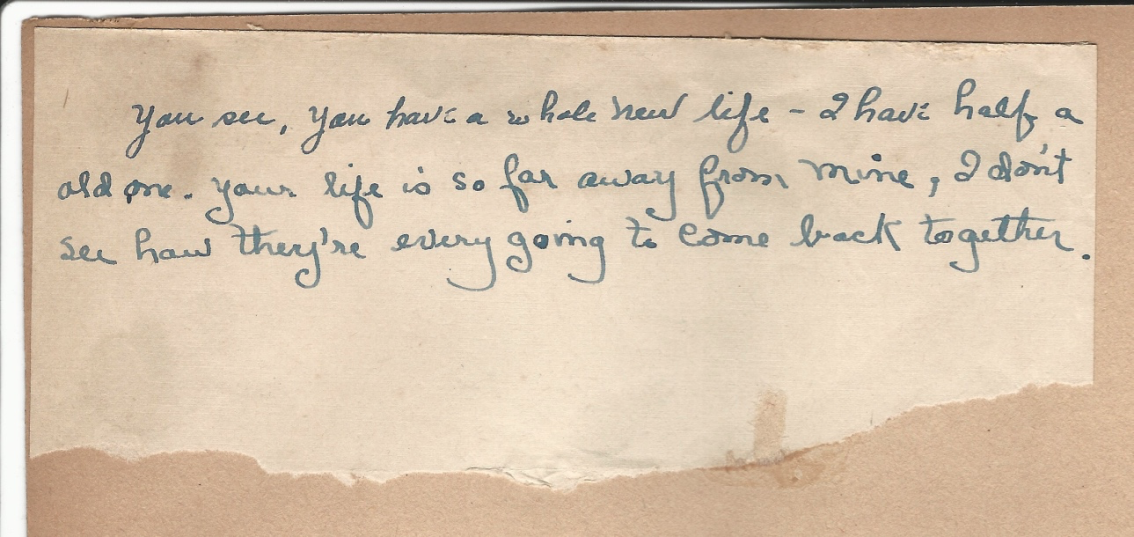 You see, you have a whole new life - I have half a
old one. Your life is so far away from mine, I don't
see how they're every going to come back together.